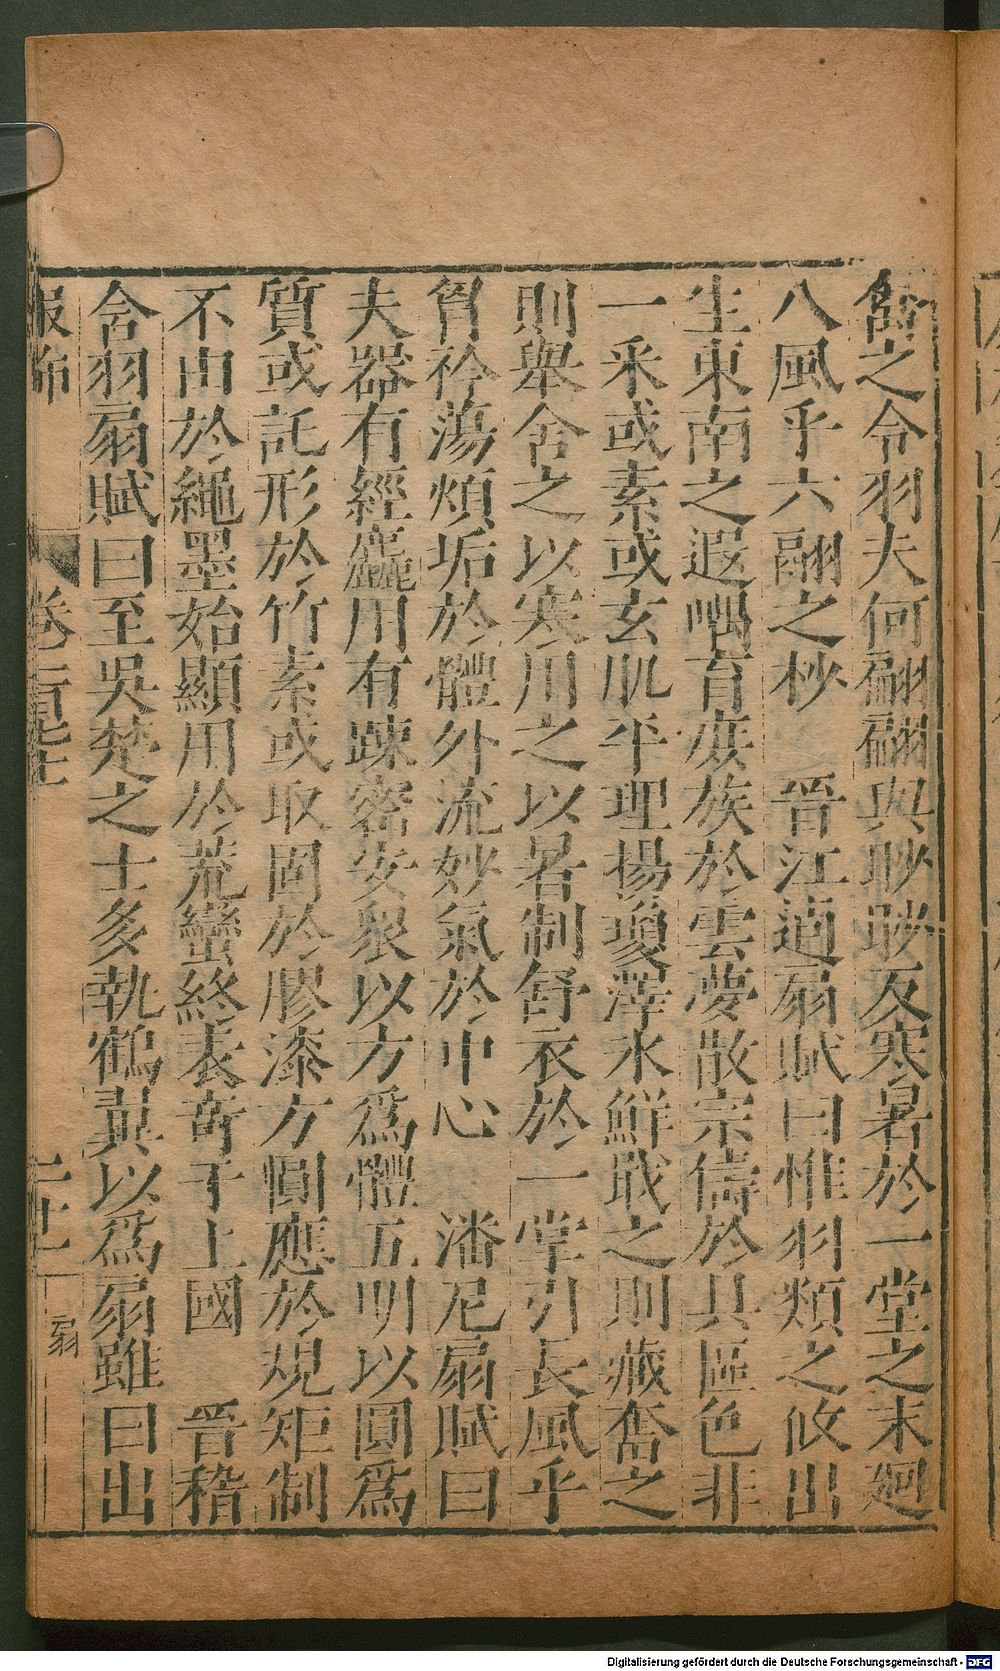 奮之令羽夫何翩翩與眇眇反寒暑於一堂之末廻
八風乎六翮之杪　晉江逌扇賦曰惟羽類之攸出
生東南之遐嵎育庶族於雲夢散宗儔於具區色非
一采或素或玄肌平理揚瓊澤水鮮戢之則藏奮之
則舉舍之以寒用之以暑制舒衣於一掌引長風乎
胷衿蕩煩垢於體外流妙氣於中心　潘尼扇賦曰
夫器有經麤用有踈密安衆以方爲體五明以圓爲
質或託形於竹素或取固於膠漆方圓應於規矩制
不由於繩墨始顯用於荒蠻終表奇于上國　晉稽
含羽扇賦曰至吳楚之士多執鶴翼以爲扇雖曰出
服飾　卷二百七十五　二十一　扇
Digitalisierung gefördert durch die Deutsche Forschungsgemeinschaft - DFG